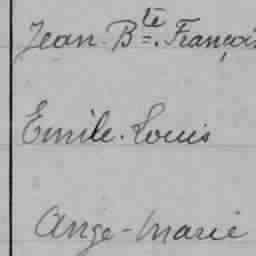 Jean Bte. François
Emile. Louis
Ange-Marie